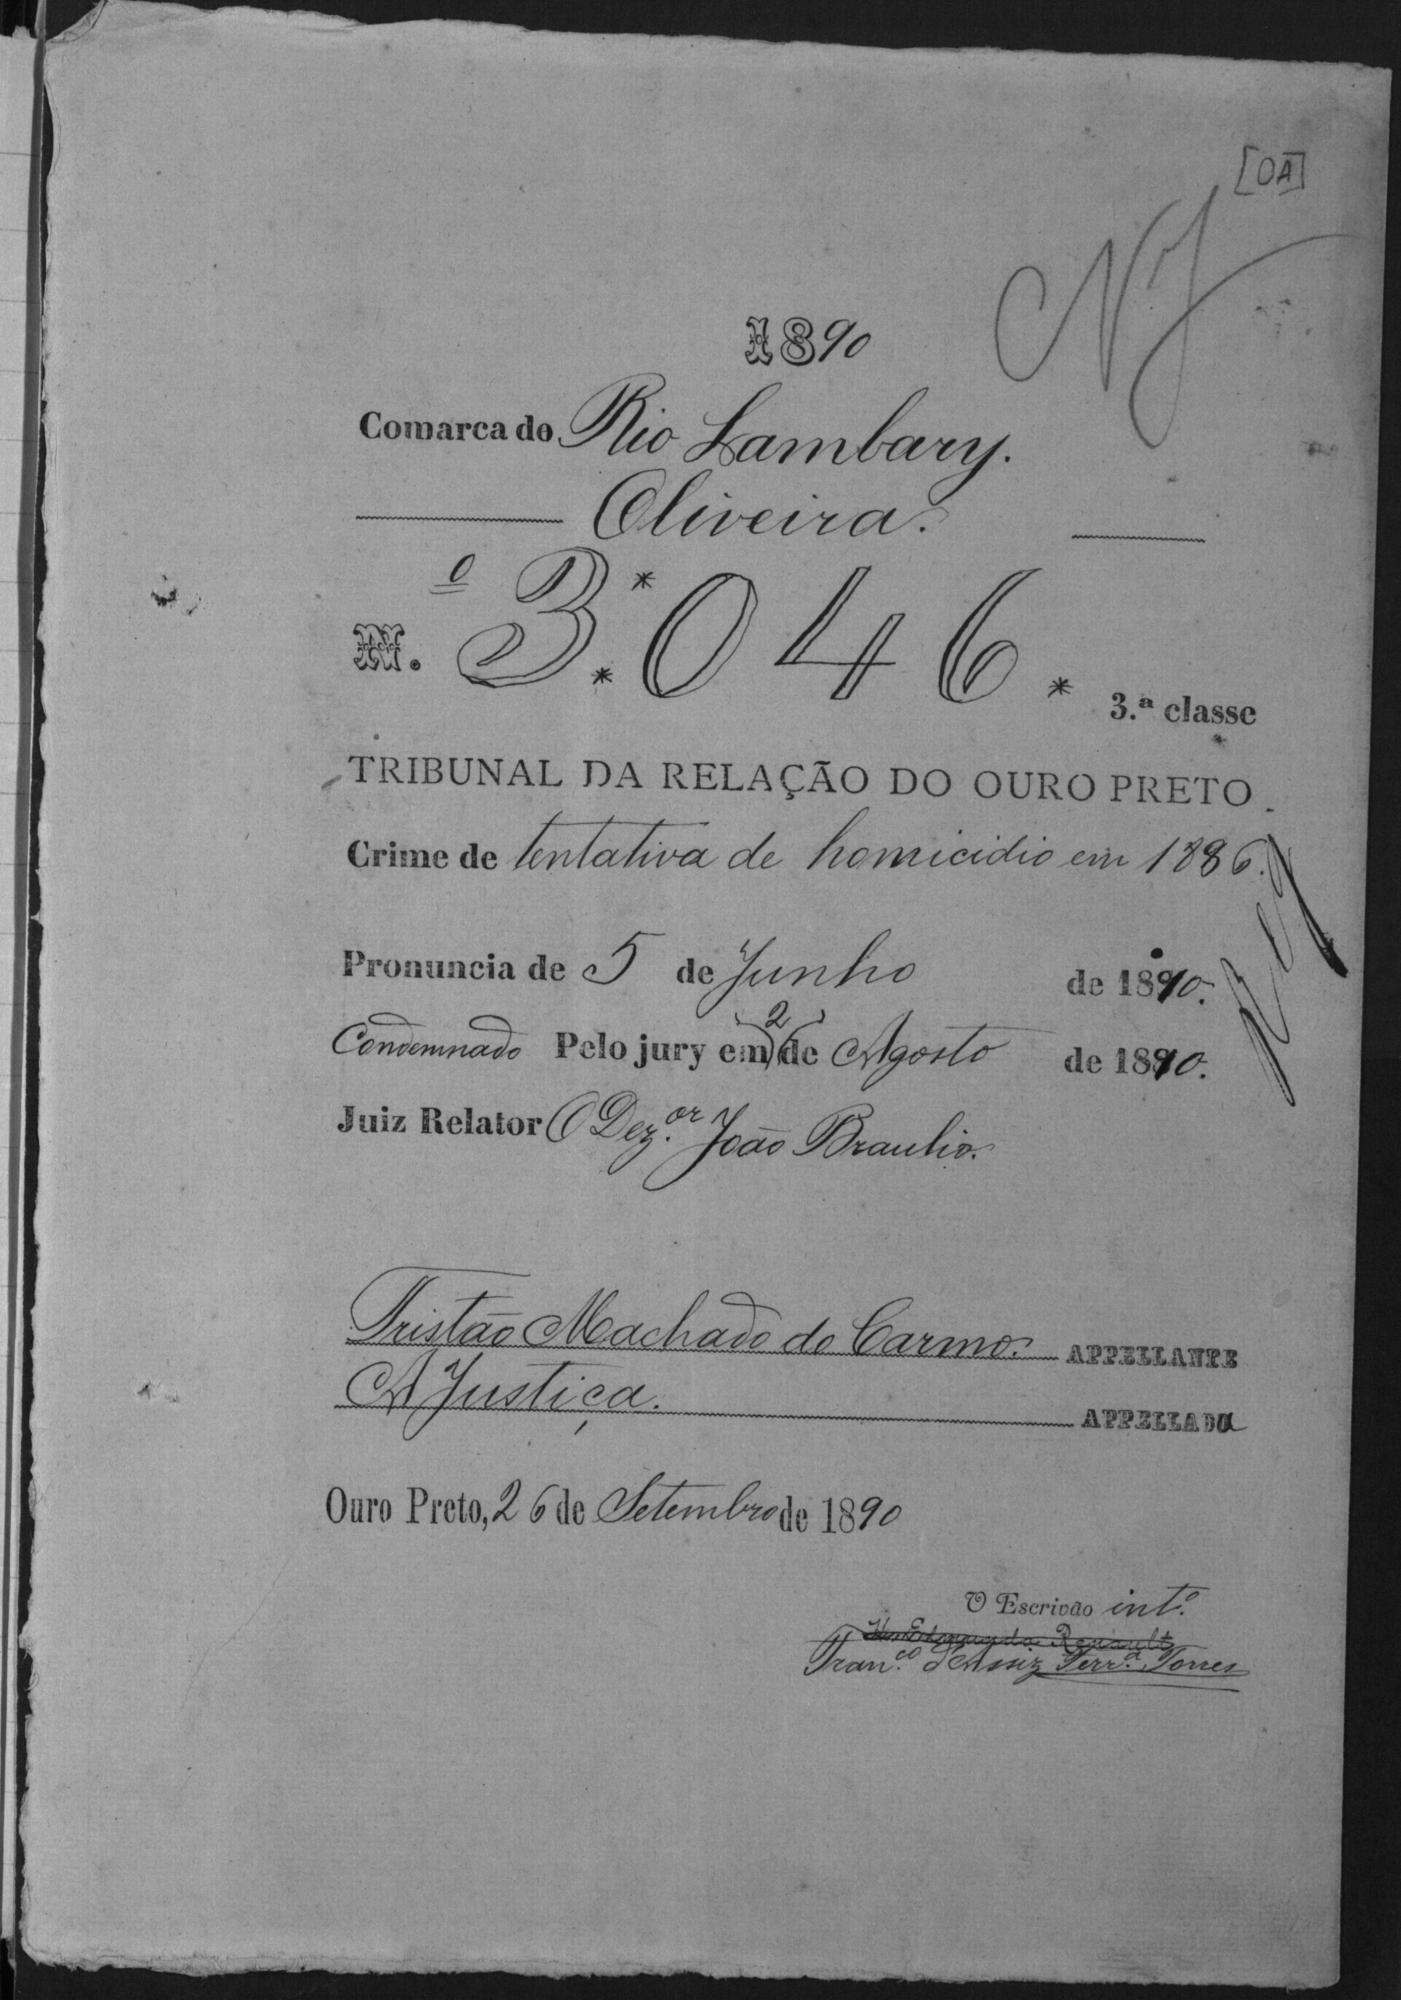 [OA]
NJ
1890
Comarca do Rio Lambary.
Oliveira.
N.º 3:046.
3.ª classe
TRIBUNAL DA RELAÇÃO DO OURO PRETO.
Crime de tentativa de homicidio em 1886.
Pronuncia de 5 de Junho de 1890.
Condemnado Pelo jury em 2 de Agosto de 1890.
Juiz Relator O Dez.or João Braulio.
Tristão Machado do Carmo. APPELLANTE
A Justiça. APPELLADA
Ouro Preto, 26 de Setembro de 1890
O Escrivão int.º
Edmundo Renault
Fran.co d'Assiz Ferr.a Torres